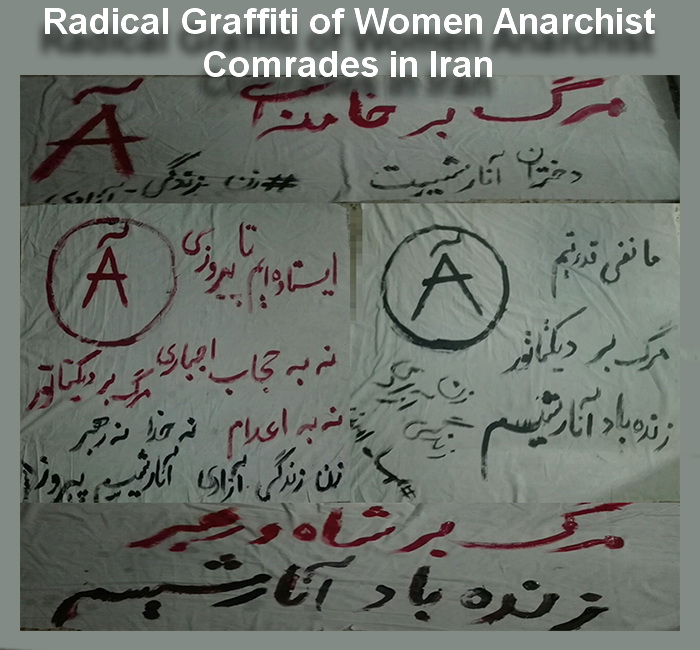 Radical Graffiti of Women Anarchist
Comrades in Iran
مرگ بر خامنه‌ای
دختران آنارشیست
#زن_زندگی_آزادی
ایستاده‌ایم تا پیروزی
نه به حجاب اجباری
مرگ بر دیکتاتور
نه به اعدام
نه خدا نه رهبر
زن زندگی آزادی
آنارشیسم پیروز
ما نفی قدرتیم
مرگ بر دیکتاتور
زنده باد آنارشیسم
مرگ بر شاه و رهبر
زنده باد آنارشیسم